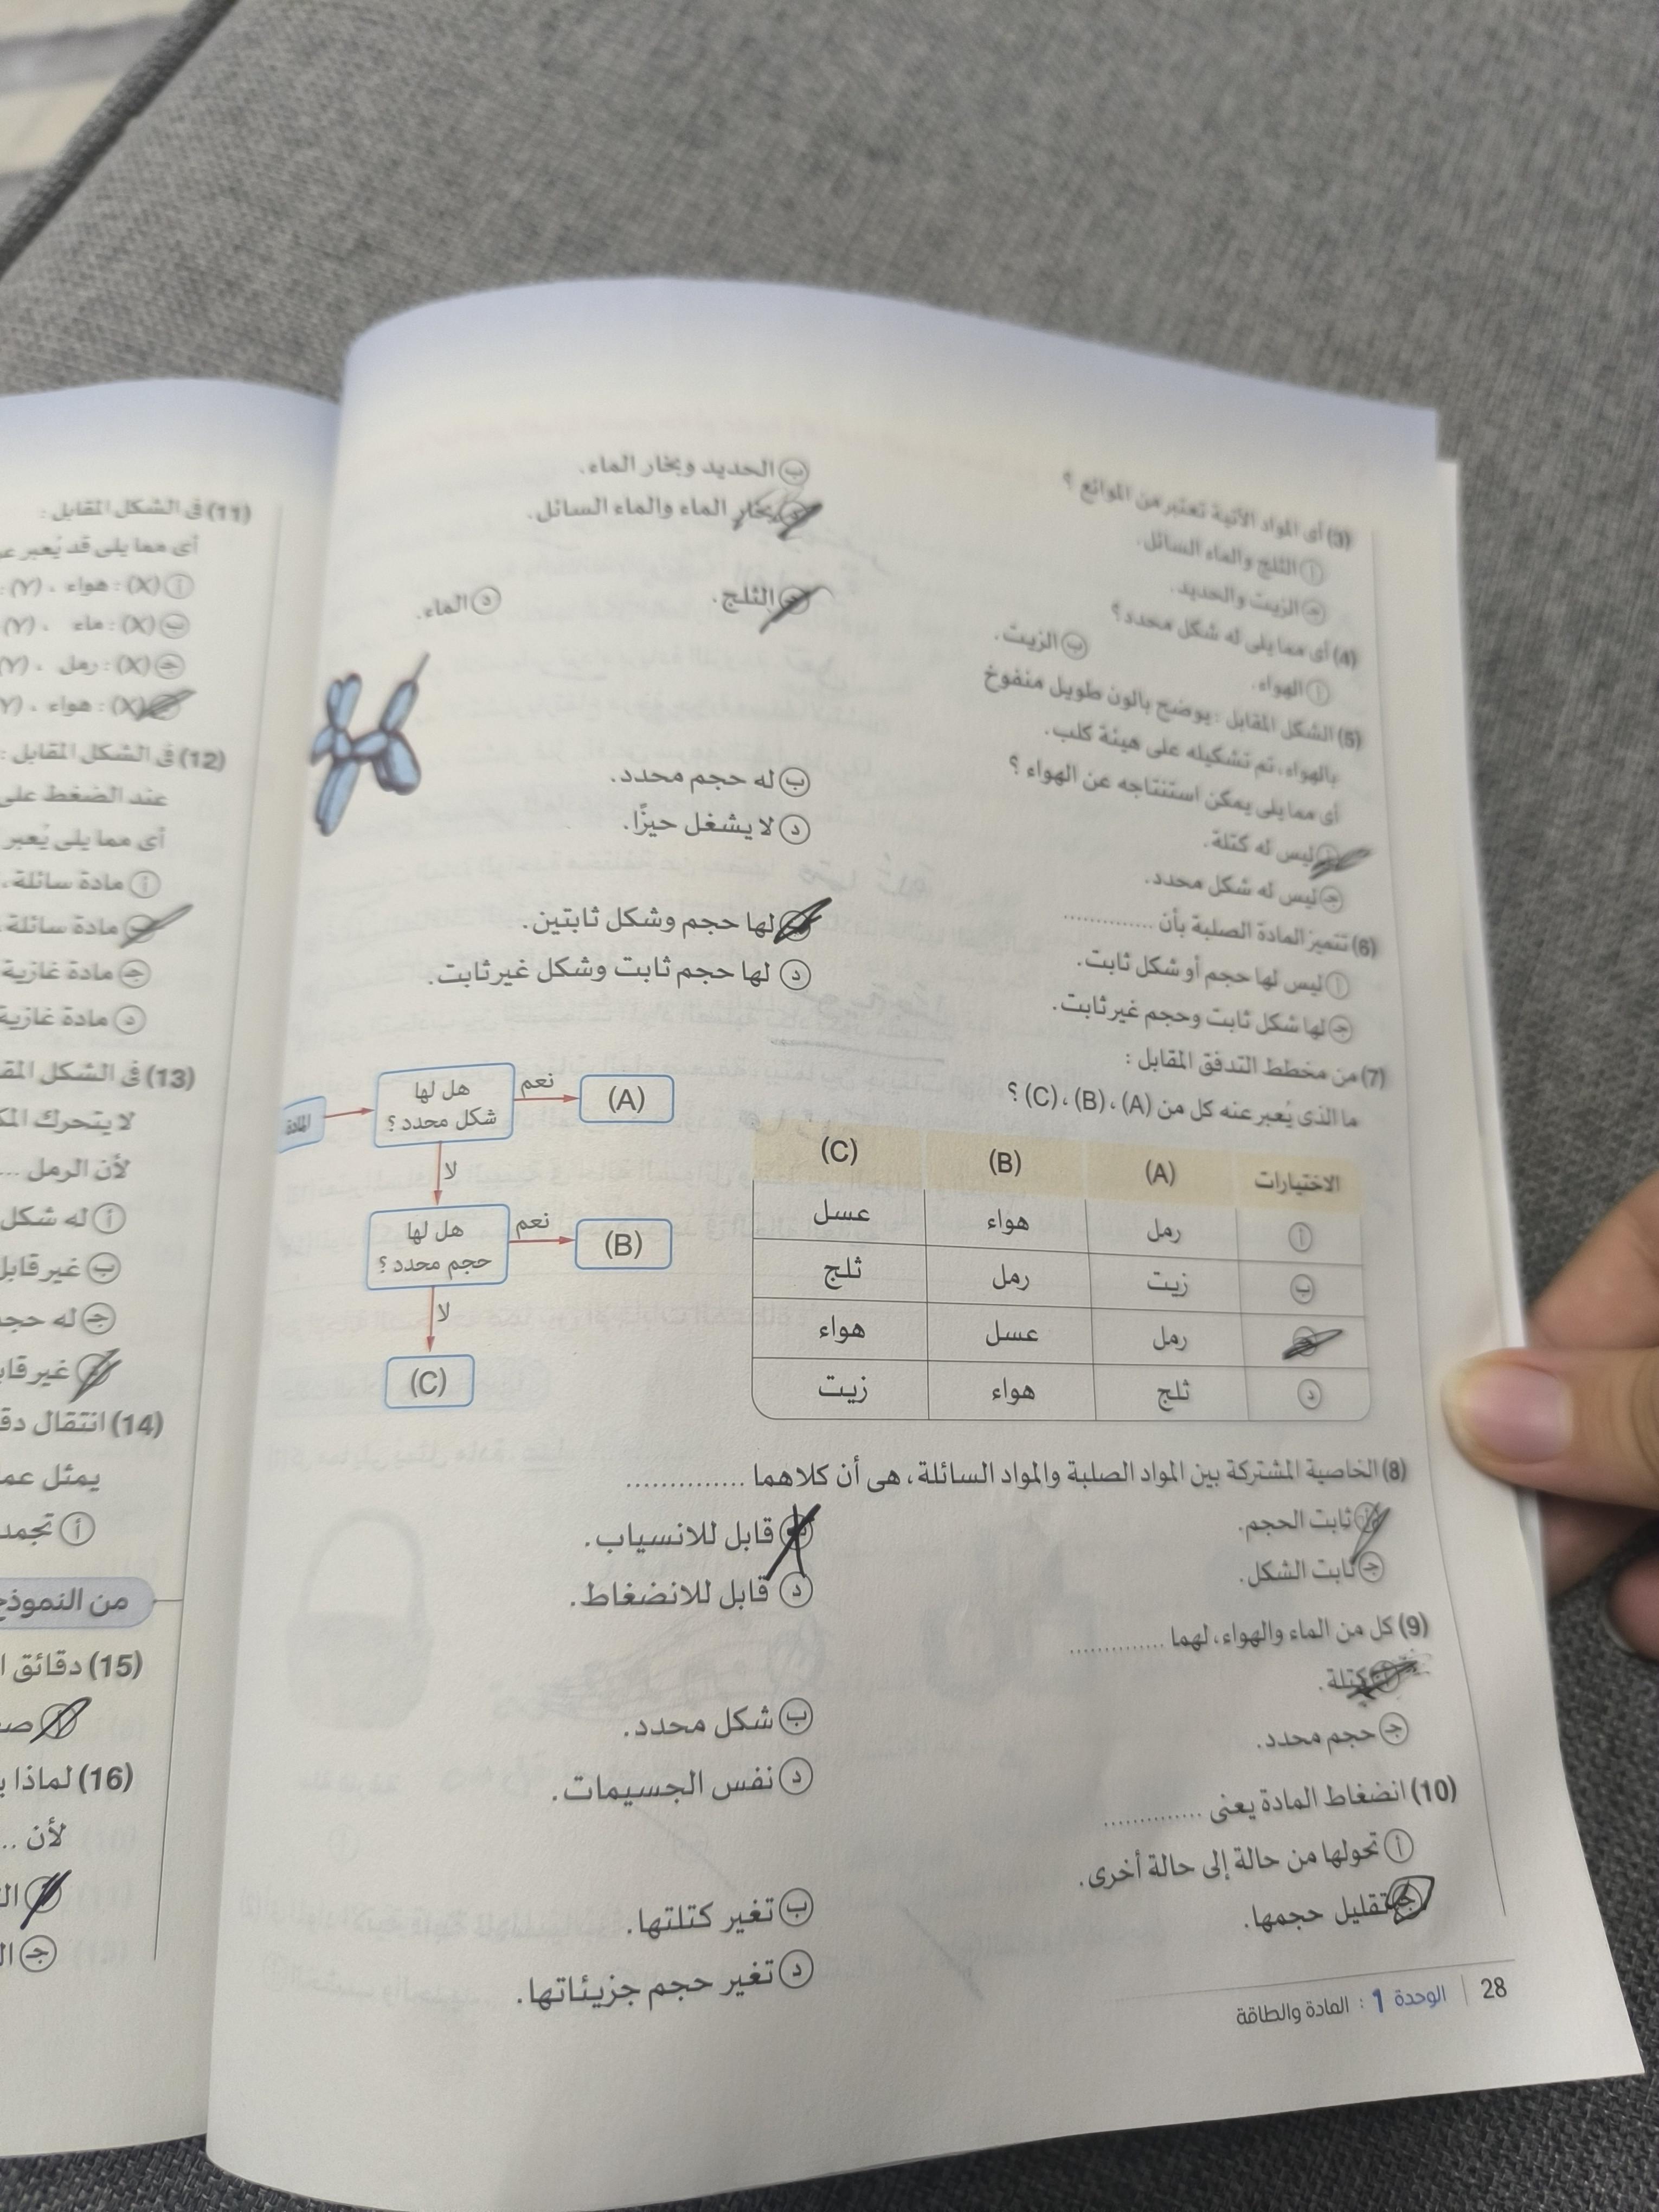 (3) أى المواد الآتية تعتبر من الموائع ؟
أ الثلج والماء السائل.
ب الحديد وبخار الماء.
ج الزيت والحديد.
د بخار الماء والماء السائل.
(4) أى مما يلى له شكل محدد؟
أ الهواء.
ب الزيت.
ج الثلج.
د الماء.
(5) الشكل المقابل : يوضح بالون طويل منفوخ
بالهواء، تم تشكيله على هيئة كلب.
أى مما يلى يمكن استنتاجه عن الهواء ؟
أ ليس له كتلة.
ب له حجم محدد.
ج ليس له شكل محدد.
د لا يشغل حيزًا.
(6) تتميز المادة الصلبة بأن ..............
أ ليس لها حجم أو شكل ثابت.
ب لها حجم وشكل ثابتين.
ج لها شكل ثابت وحجم غير ثابت.
د لها حجم ثابت وشكل غير ثابت.
(7) من مخطط التدفق المقابل :
ما الذى يُعبر عنه كل من (A)، (B)، (C) ؟
الاختيارات (A) (B) (C)
أ رمل هواء عسل
ب زيت رمل ثلج
ج رمل عسل هواء
د ثلج هواء زيت
المادة
هل لها
شكل محدد ؟
نعم
(A)
لا
هل لها
حجم محدد ؟
نعم
(B)
لا
(C)
(8) الخاصية المشتركة بين المواد الصلبة والمواد السائلة، هى أن كلاهما ..............
أ ثابت الحجم.
ب قابل للانسياب.
ج ثابت الشكل.
د قابل للانضغاط.
(9) كل من الماء والهواء، لهما ..............
أ كتلة.
ب شكل محدد.
ج حجم محدد.
د نفس الجسيمات.
(10) انضغاط المادة يعنى ..............
أ تحولها من حالة إلى حالة أخرى.
ب تغير كتلتها.
ج تقليل حجمها.
د تغير حجم جزيئاتها.
28 | الوحدة 1 : المادة والطاقة
(11) فى الشكل المقابل :
أى مما يلى قد يُعبر
أ (X) : هواء ، (Y) :
ب (X) : ماء ، (Y)
ج (X) : رمل ، (Y)
(X) : هواء ، (Y)
(12) فى الشكل المقابل :
عند الضغط على
أى مما يلى يُعبر
أ مادة سائلة.
ب مادة سائلة
ج مادة غازية
د مادة غازية
(13) فى الشكل
لا يتحرك
لأن الرمل ...
أ له شكل
ب غير
ج له
د غير
(14) انتقال
يمثل
أ
من
(15) دقائق
(16) لماذا
لأن ...